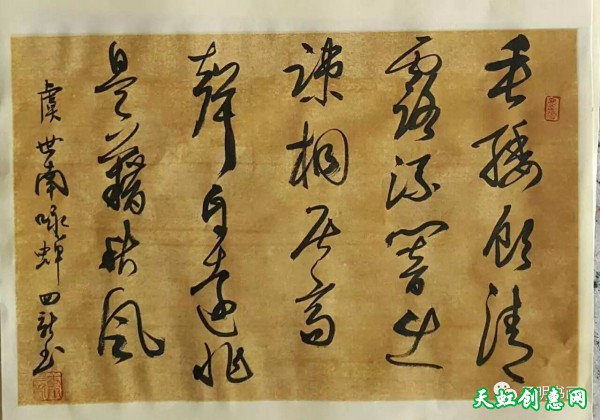 垂緌飲清
露流響出
疎桐居高
聲自遠非
是藉秋風
虞世南咏蟬 四 书
天虹创惠网